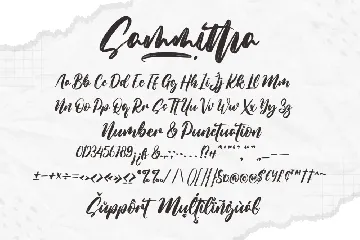 Sammittra
Aa Bb Cc Dd Ee Ff Gg Hh Ii Jj Kk Ll Mm
Nn Oo Pp Qq Rr Ss Tt Uu Vv Ww Xx Yy Zz
Number & Punctuation
0123456789
Support Multilingual